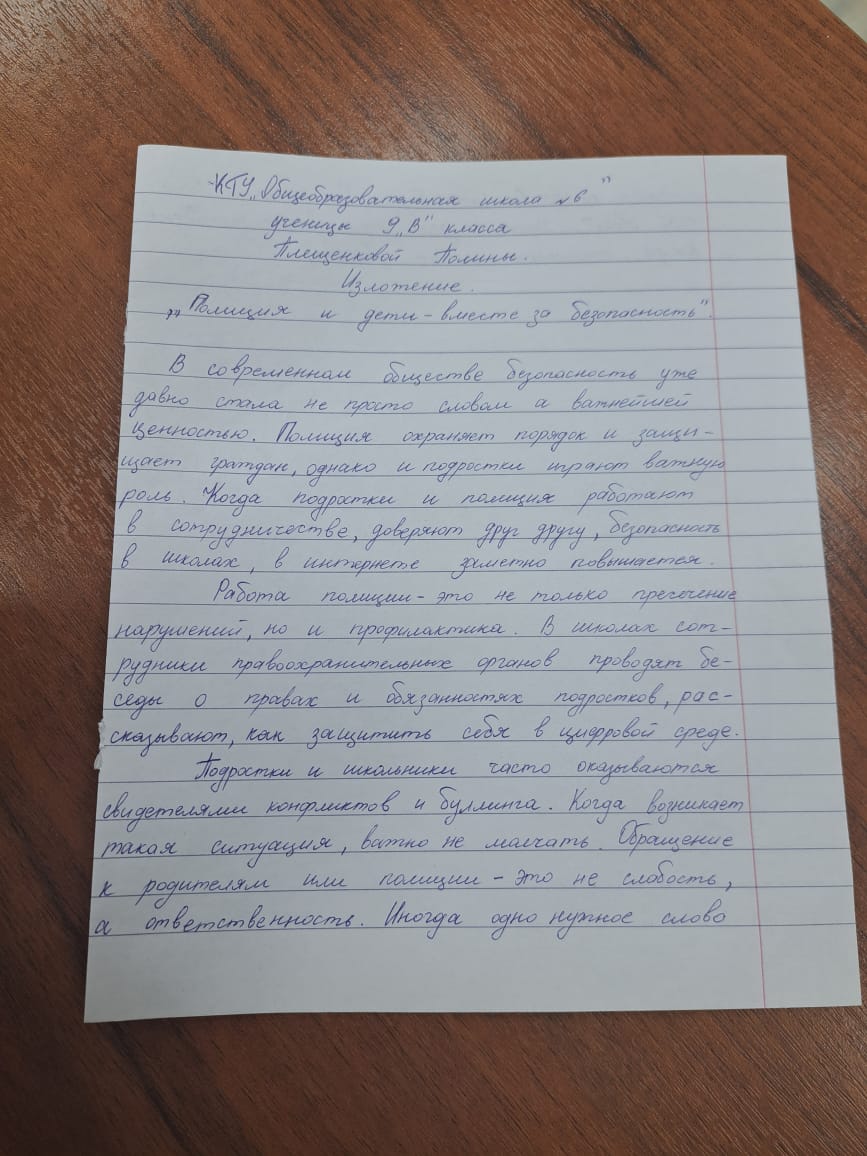 КГУ „Общеобразовательная школа №6"
ученицы 9 „В" класса
Плещенковой Полины.
Изложение.
„Полиция и дети – вместе за безопасность".
В современном обществе безопасность уже
давно стала не просто словом а важнейшей
ценностью. Полиция охраняет порядок и защи-
щает граждан, однако и подростки играют важную
роль. Когда подростки и полиция работают
в сотрудничестве, доверяют друг другу, безопасность
в школах, в интернете заметно повышается.
Работа полиции – это не только пресечение
нарушений, но и профилактика. В школах сот-
рудники правоохранительных органов проводят бе-
седы о правах и обязанностях подростков, рас-
сказывают, как защитить себя в цифровой среде.
Подростки и школьники часто оказываются
свидетелями конфликтов и буллинга. Когда возникает
такая ситуация, важно не молчать. Обращение
к родителям или полиции – это не слабость,
а ответственность. Иногда одно нужное слово